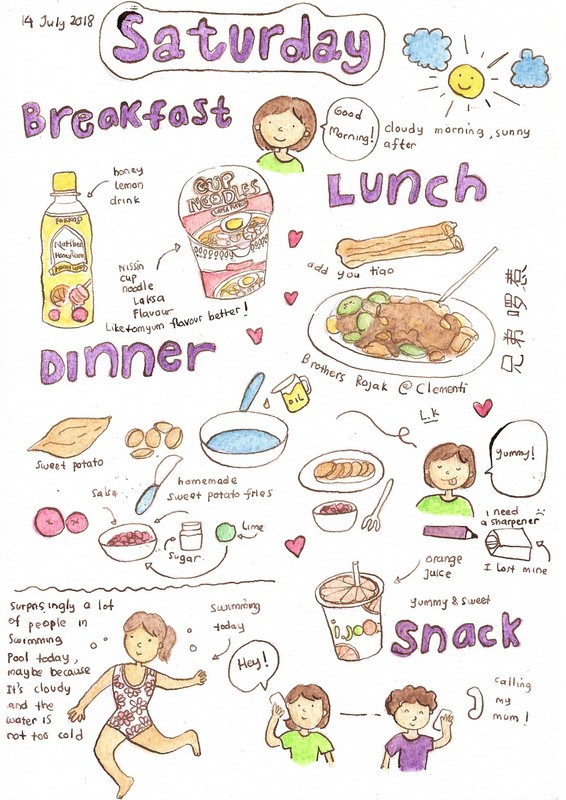 14 July 2018
Saturday
Breakfast
Good
Morning!
cloudy morning, sunny
after
honey
lemon
drink
POKKA
Natsbee
CUP
NOODLES
Nissin
cup
noodle
Laksa
Flavour
Like tomyum flavour better!
Lunch
add you tiao
兄弟啰惹
Brothers Rojak @ Clementi
L.K
Dinner
OIL
sweet potato
homemade
sweet potato fries
Salsa
Sugar
lime
Yummy!
i need
a sharpener
I lost mine
orange
juice
Yummy & sweet
ijooz
Snack
Surprisingly a lot
of people in
Swimming
Pool today,
maybe because
It's cloudy
and the
water is
not too cold
Swimming
today
Hey!
calling
my
mum!